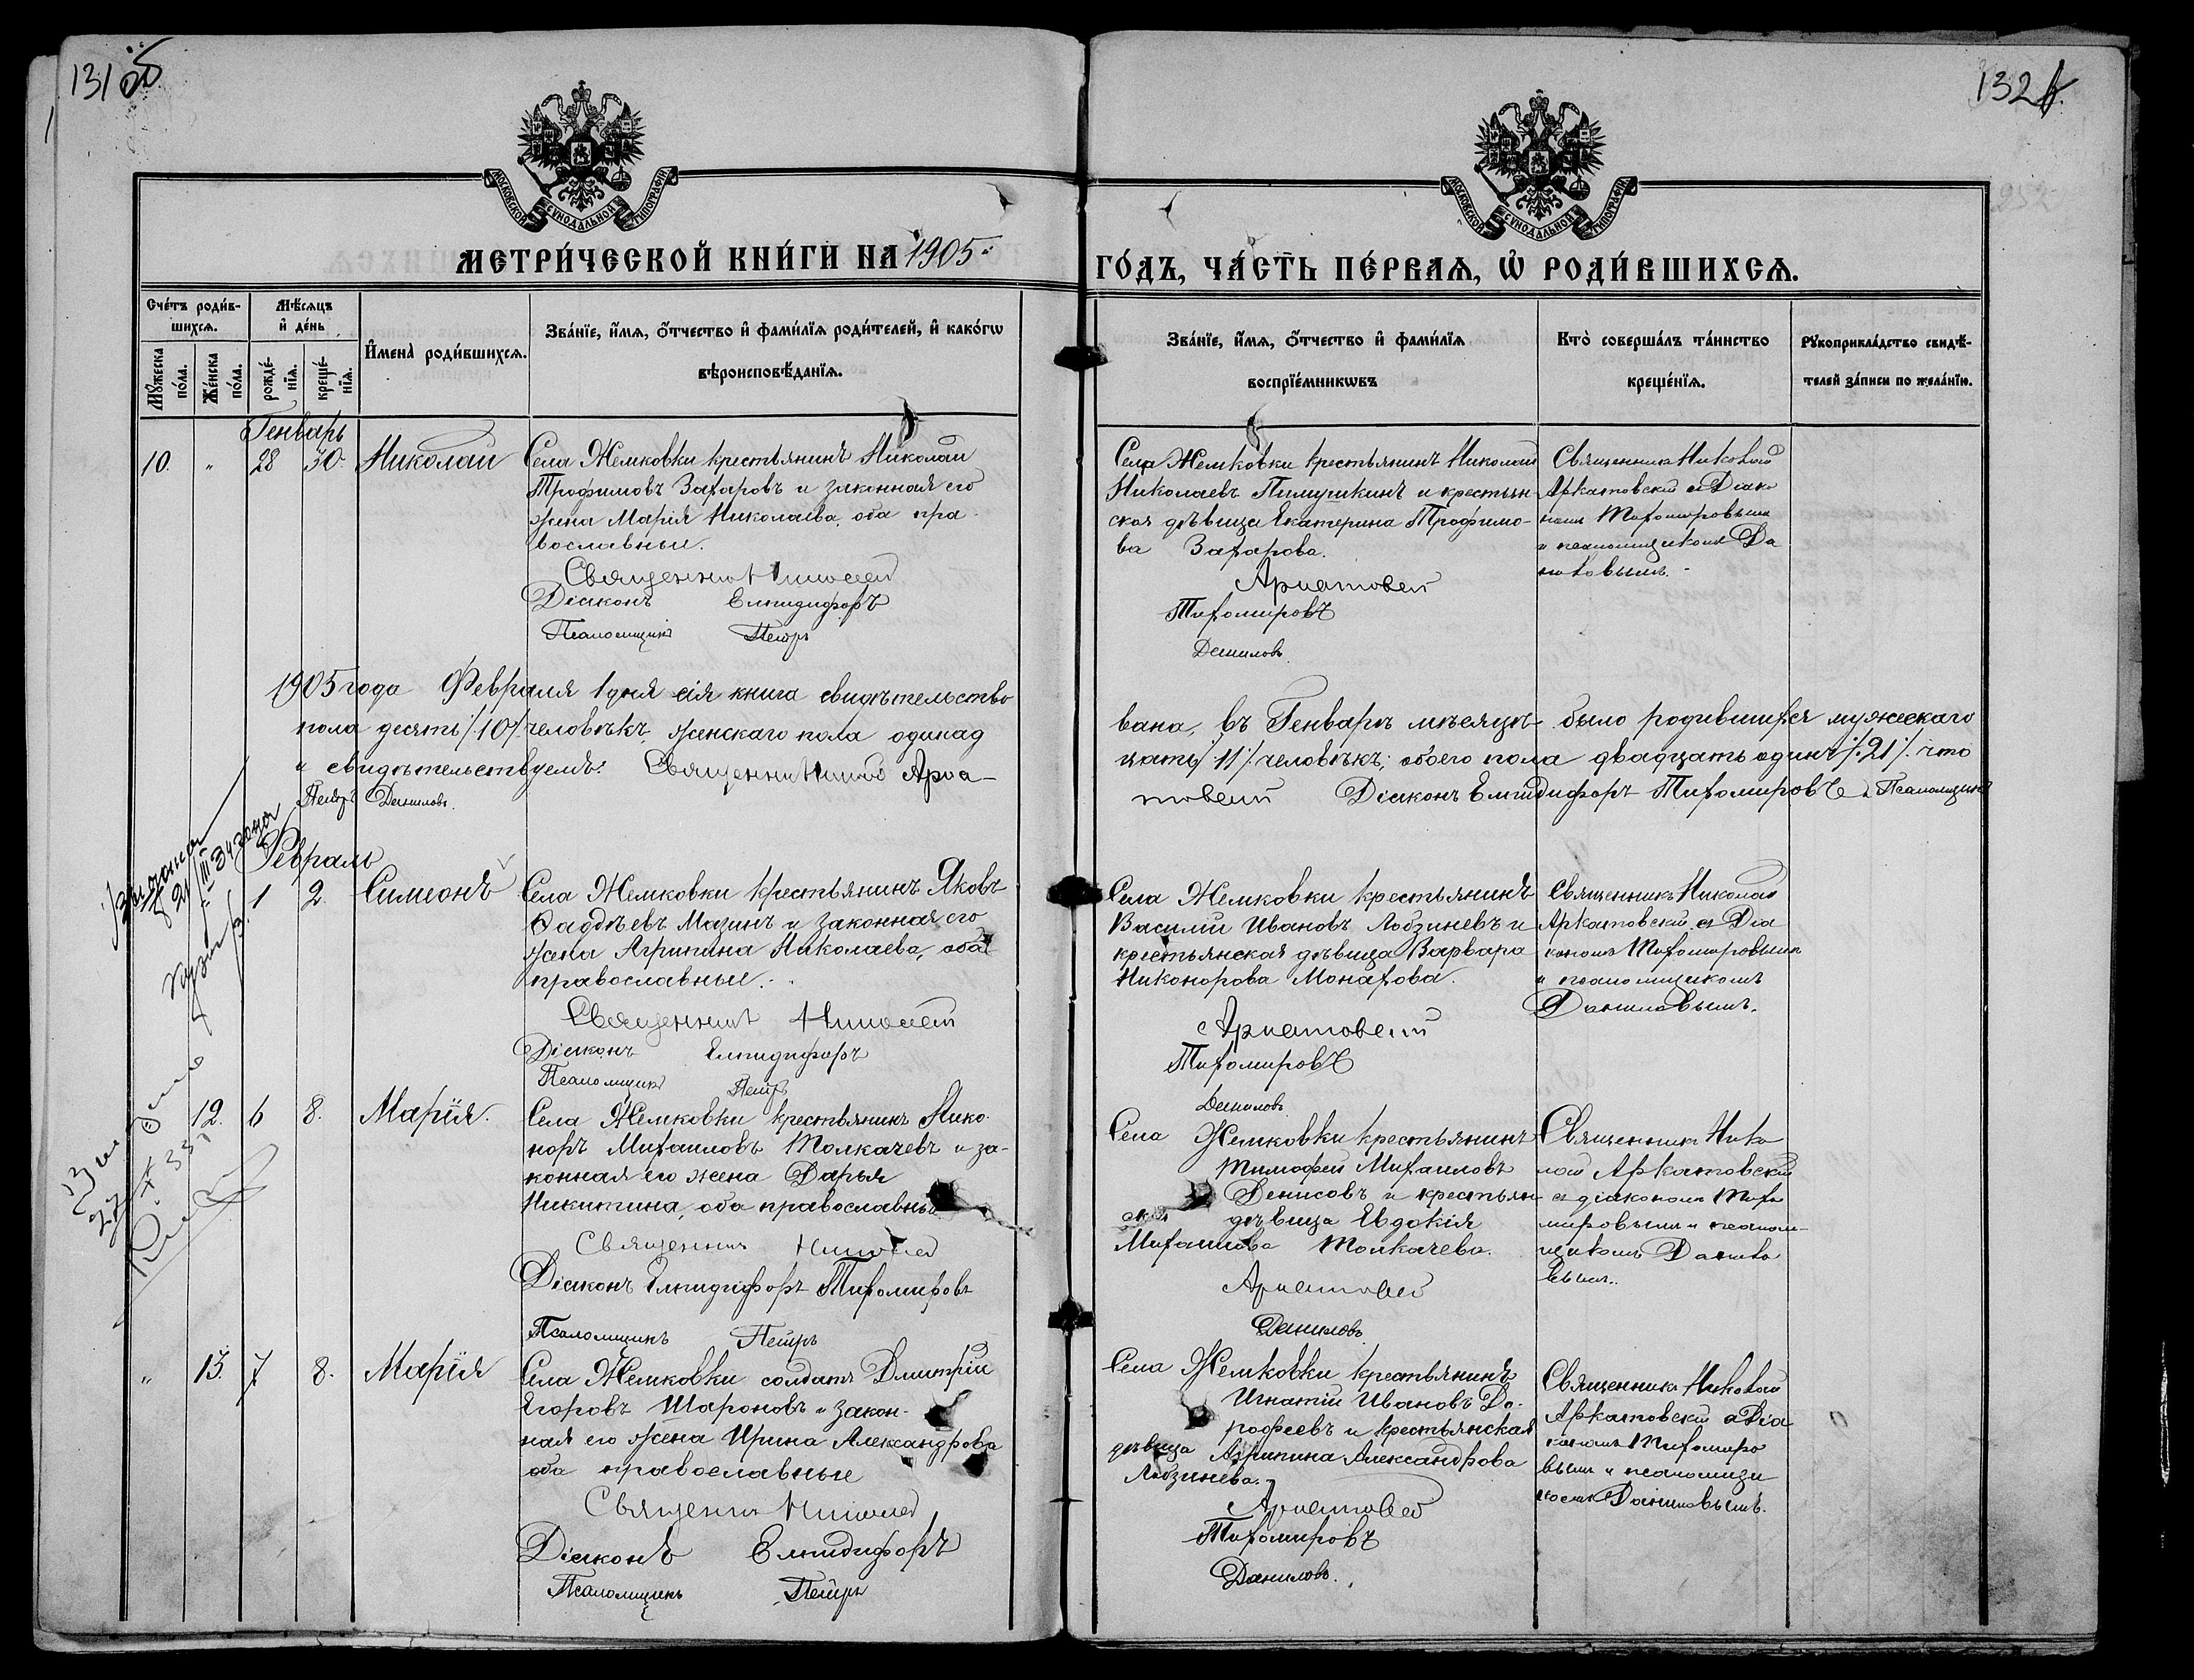 131 об
132
МОСКОВСКОЙ СѴНОДАЛЬНОЙ ТИПОГРАФІИ
МОСКОВСКОЙ СѴНОДАЛЬНОЙ ТИПОГРАФІИ
МЕТРИ́ЧЕСКОЙ КНИ́ГИ НА 1905
ГО́ДЪ, ЧА́СТЬ ПЕ́РВАѦ, Ѡ҆ РОДИ́ВШИХСѦ.
Сче́тъ роди́в-
шихсѧ.
Мѣ́сѧцъ
и҆ де́нь
Мꙋ́жеска
по́ла.
Же́нска
по́ла.
рожде́-
нїѧ.
креще́-
нїѧ.
И҆мена̀ роди́вшихсѧ.
Зва́нїе, и҆́мѧ, ѻ҆́тчество и҆ фами́лїѧ роди́телей, и҆ како́гѡ
вѣроисповѣ́данїѧ.
Зва́нїе, и҆́мѧ, ѻ҆́тчество и҆ фами́лїѧ
воспрїе́мникѡвъ
Кто̀ соверша́лъ та́инство
креще́нїѧ.
Рꙋкоприкла́дство свидѣ́-
телей за́писи по жела́нїю.
Генварь
10. " 28 30. Николай
Села Жемковки крестьянинъ Николай
Трофимовъ Захаровъ и законная его
жена Марія Николаева, оба пра-
вославные.
Священникъ Николай
Діаконъ Елпидифоръ
Псаломщикъ Петръ
Села Жемковки крестьянинъ Николай
Николаевъ Пимушкинъ и крестьян
ская дѣвица Екатерина Трофимо-
ва Захарова.
Аркатовскій
Тихомировъ
Даниловъ
Священникъ Николай
Аркатовскій съ Діако
номъ Тихомировымъ
и псаломщикомъ Да
ниловымъ.
1905 года Февраля 1 дня сія книга свидѣтельство
вана, въ Генварѣ мѣсяцѣ было родившихся мужескаго
пола десять /.10./ человѣкъ, женскаго пола одинад
цать /.11./ человѣкъ; обоего пола двадцать одинъ /.21./. что
и свидѣтельствуемъ: Священникъ Николай Арка-
товскій Діаконъ Елпидифоръ Тихомировъ и Псаломщикъ
Петръ Даниловъ.
Февраль
1 2. Симеонъ
Села Жемковки крестьянинъ Яковъ
Фаддѣевъ Мазинъ и законная его
жена Агрипина Николаева, оба
православные.
Священникъ Николай
Діаконъ Елпидифоръ
Псаломщикъ Петръ
Села Жемковки крестьянинъ
Василій Ивановъ Лобзиневъ и
крестьянская дѣвица Варвара
Никонорова Монахова.
Аркатовскій
Тихомировъ
Даниловъ
Священникъ Николай
Аркатовскій съ Діа
кономъ Тихомировымъ
и псаломщикомъ
Даниловымъ.
12. 6 8. Марія.
Села Жемковки крестьянинъ Нико-
норъ Михаиловъ Толкачевъ и за-
конная его жена Дарья
Никитина, оба православные
Священникъ Николай
Діаконъ Елпидифоръ Тихомировъ
Псаломщикъ Петръ
Села Жемковки крестьянинъ
Тимофей Михаиловъ
Денисовъ и крестьян
ская дѣвица Евдокія
Михаилова Толкачева.
Аркатовскій
Даниловъ
Священникъ Нико
лай Аркатовскій
съ діакономъ Тихо
мировымъ и псалом-
щикомъ Данило
вымъ.
" 13. 7 8. Марія
Села Жемковки солдатъ Дмитрій
Егоровъ Шароновъ и закон-
ная его жена Ирина Александрова
оба православные
Священникъ Николай
Діаконъ Елпидифоръ
Псаломщикъ Петръ
Села Жемковки крестьянинъ
Игнатій Ивановъ До-
рофеевъ и крестьянская
дѣвица Агрипина Александрова
Лобзинева.
Аркатовскій
Тихомировъ
Даниловъ.
Священникъ Николай
Аркатовскій съ Діа
кономъ Тихомиро
вымъ и псаломщи
комъ Даниловымъ.